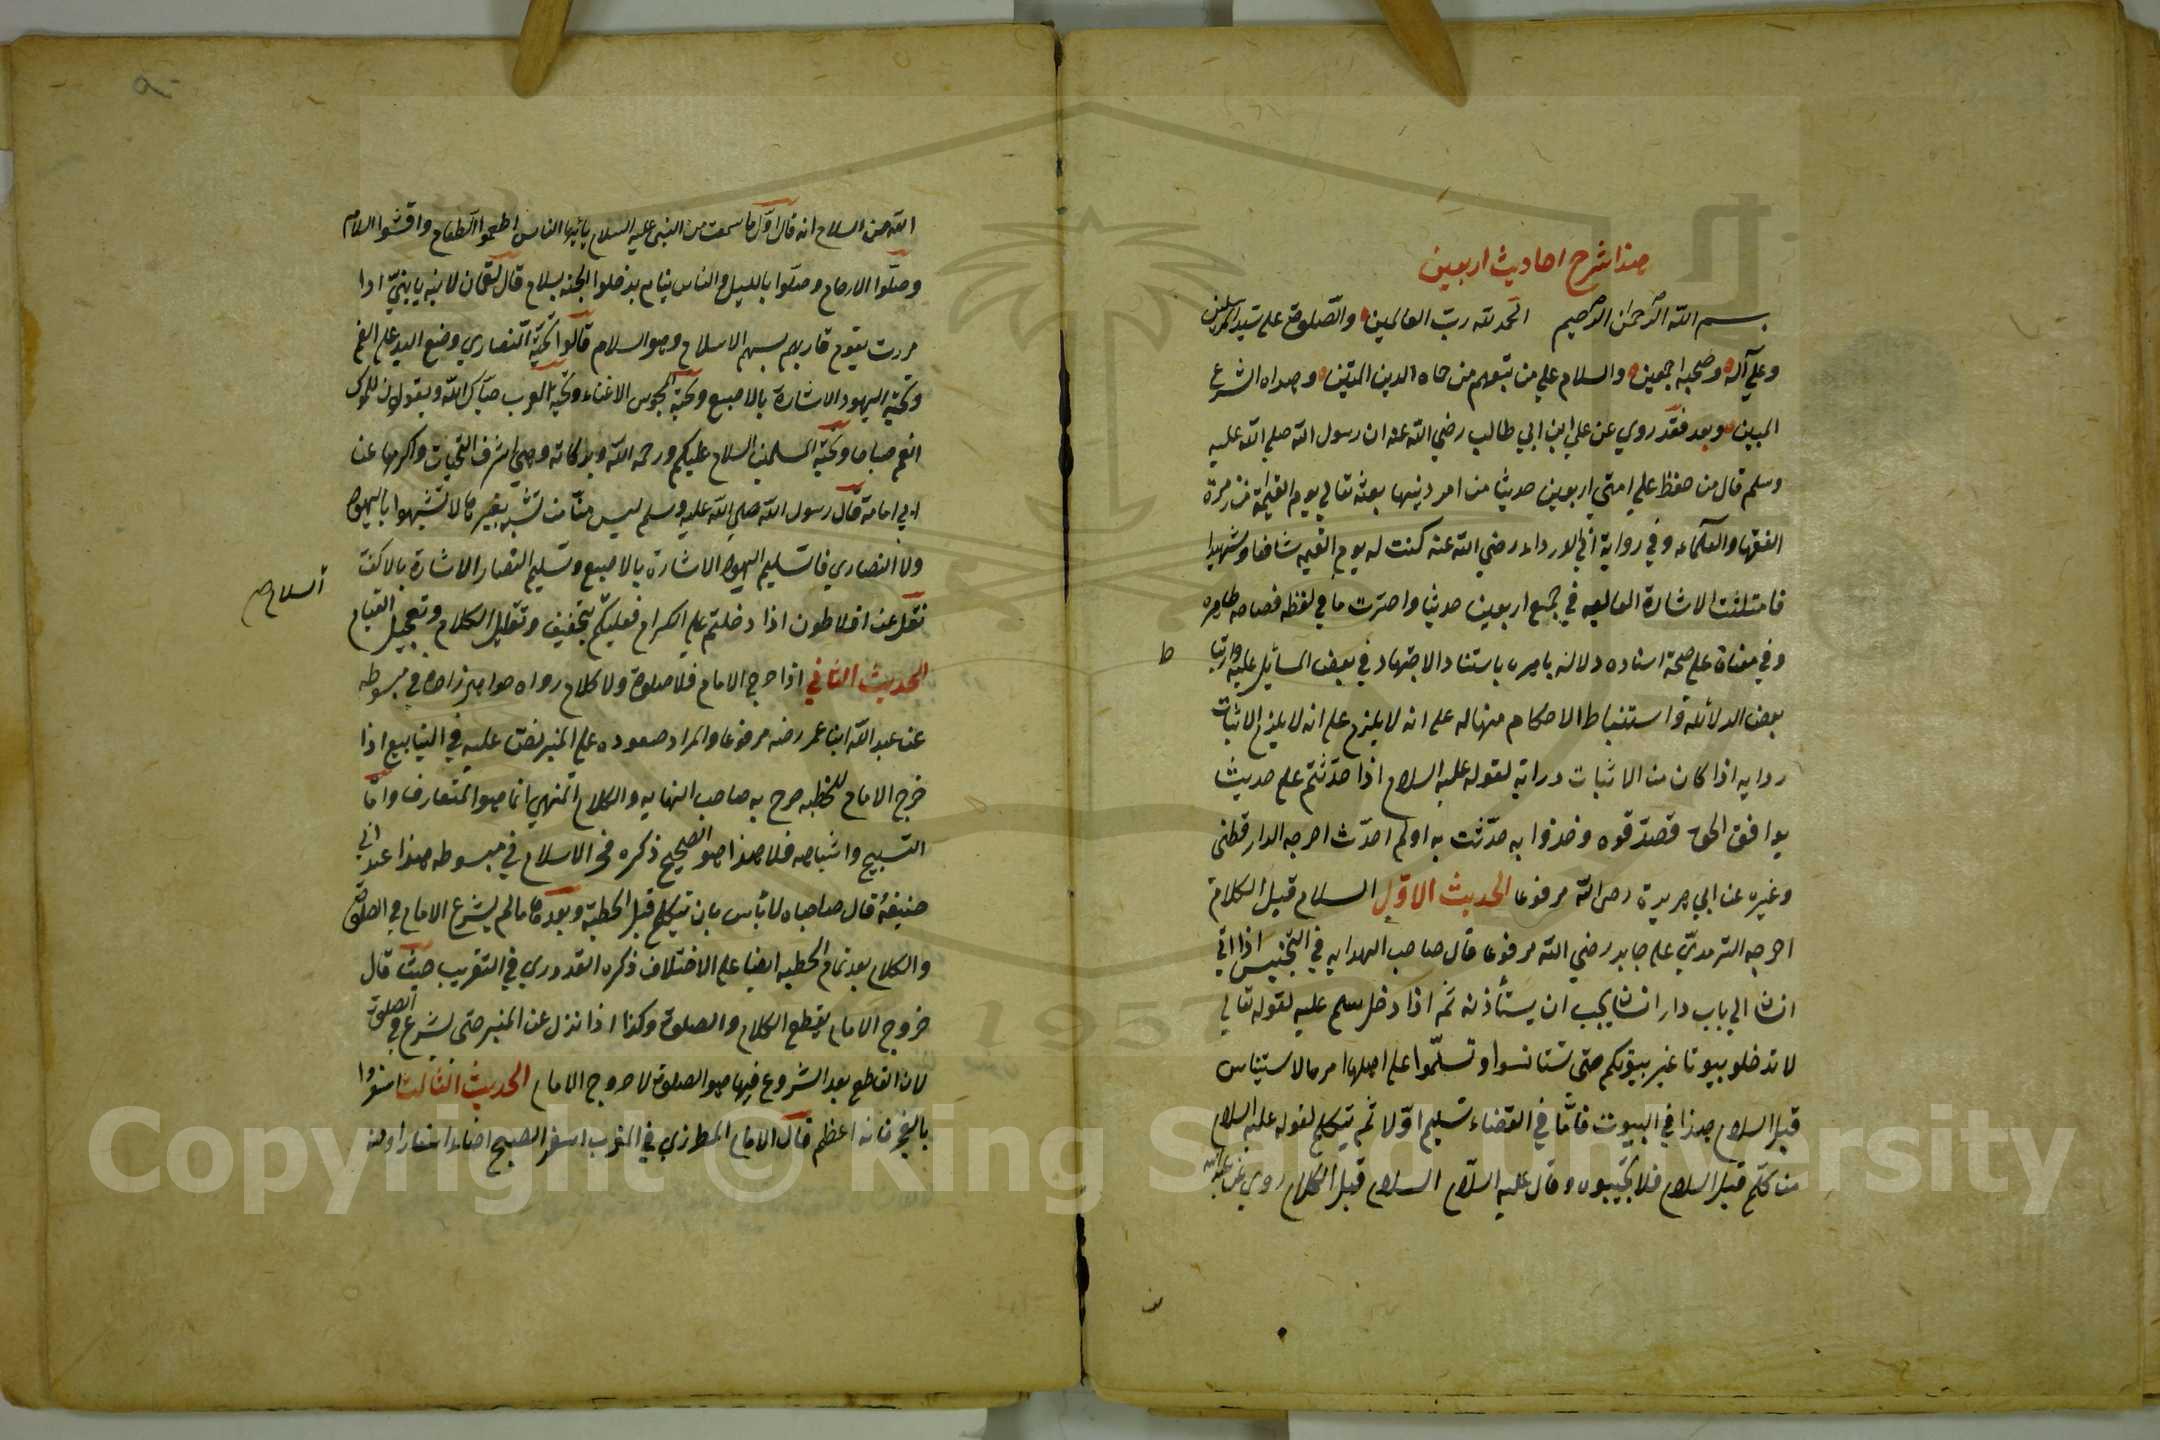 هذا شرح احاديث اربعين
بسم الله الرحمن الرحيم الحمد لله رب العالمين والصلوة على سيد المرسلين
وعلي آله وصحبه اجمعين والسلام علي من تبعهم من حماه الدين المتين وهداه الشرع
المبين وبعد فقد روي عن علي ابن ابي طالب رضي الله عنه ان رسول الله صلي الله عليه
وسلم قال من حفظ علي امتي اربعين حديثا من امر دينها بعثه تعالي يوم القيمة من زمرة
الفقها والعلماء وفي رواية ابي الدرداء رضي الله عنه كنت له يوم القيمه شافعا وشهيدا
فامتثلت الاشارة العاليه في جمع اربعين حديثا واخترت ما في لفظه فصاحه ظاهره
وفي معناه علي صحة اسناده دلالة باهره باستناد الاجتهاد في بعض المسائل عليه وارتباط
بعض الدلائله واستنباط الاحكام منها له على انه لا يلزم على انه لا يلزم الاثبات
روايه اذا كان من الاثبات دراية لقوله عليه السلام اذا حدثتم على حديثا
يوافق الحق فصدقوه وخذوا به حدثت به اولم احدث اخرجه الدارقطني
وغيره عن ابي هريرة رضى الله مرفوعا الحديث الاول السلام قبل الكلام
اخرجه الترمدي على جابر رضي الله مرفوعا قال صاحب الهدايه في التجنيس اذا اتي
انسان الي باب دار انسان يجب ان يستأذنه ثم اذا دخل سلم عليه لقوله تعالي
لا تدخلو بيوتا غير بيوتكم حتى تستانسوا وتسلموا على اهلها امر بالاستيناس
قبل السلام هذا في البيوت فاما في القضاء تسليم اولا ثم يتكلم لقوله عليه السلام
من تكلم قبل السلام فلا تجيبوه وقال عليه السلام السلام قبل الكلام روي عن عبد الله
الله من السلام انه قال اول ما سمعت من النبى عليه السلام يا ايها الناس اطعموا الطعام وافشوا السلام
وصلوا الارحام وصلوا بالليل والناس ينام بدخلوا الجنه بسلام قال لقمان لابنه يا بني اذا
مررت بقوم فاربهم بسهم الاسلام وهو السلام قالوا تحية النصاري وضع اليد على الفم
وتحية اليهود الاشارة بالاصبع وتحية المجوس الانحناء وتحية العرب حياك الله ويقولون للملوك
انعم صباحا وتحية المسلمين السلام عليكم ورحمه الله وبركاته وهي اشرف التحيات واكرمها عن
ابي امامة قال رسول الله صلي الله عليه وسلم ليس منا من تشبه بغيرنا لا تشبهوا باليهود
ولا النصاري فان تسليم اليهود الاشارة بالاصبع وتسليم النصار الاشارة بالاكف
السلام
نقل عن افلاطون اذا دخلتم على الكرام فعليكم بتخفيف وتقليل الكلام وتعجيل القيام
الحديث الثاني اذا خرج الامام فلا صلوة ولا كلام رواه خواهر زاده في مبسوطه
عن عبد الله ابن عمر رضه مرفوعا والمراد صعوده على المنبر نص عليه في الينابيع اذا
خرج الامام للخطبه صرح به صاحب النهايه والكلام المنهي انما هو المتعارف واما
التسبيح واشباهه فلا هذا هو الصحيح ذكره فخر الاسلام في مبسوطه هذا عند ابي
حنيفة قال صاحباه لا بأس بان يتكلم قبل الخطبة وبعدها ما لم يشرع الامام في الصلوة
والكلام بعد تمام الخطبه ايضا على الاختلاف ذكره القدوري في التقريب حيث قال
خروج الامام يقطع الكلام والصلوة وكذا اذا نزل عن المنبر حتى يشرع في الصلوة
لان القاطع بعد الشروع فيها هو الصلوة لا خروج الامام الحديث الثالث اسفروا
بالفجر فانه اعظم قال الامام المطرزي في المغرب اسفر الصبح اضاء اسفارا ومنه
Copyright © King Saud University
1957